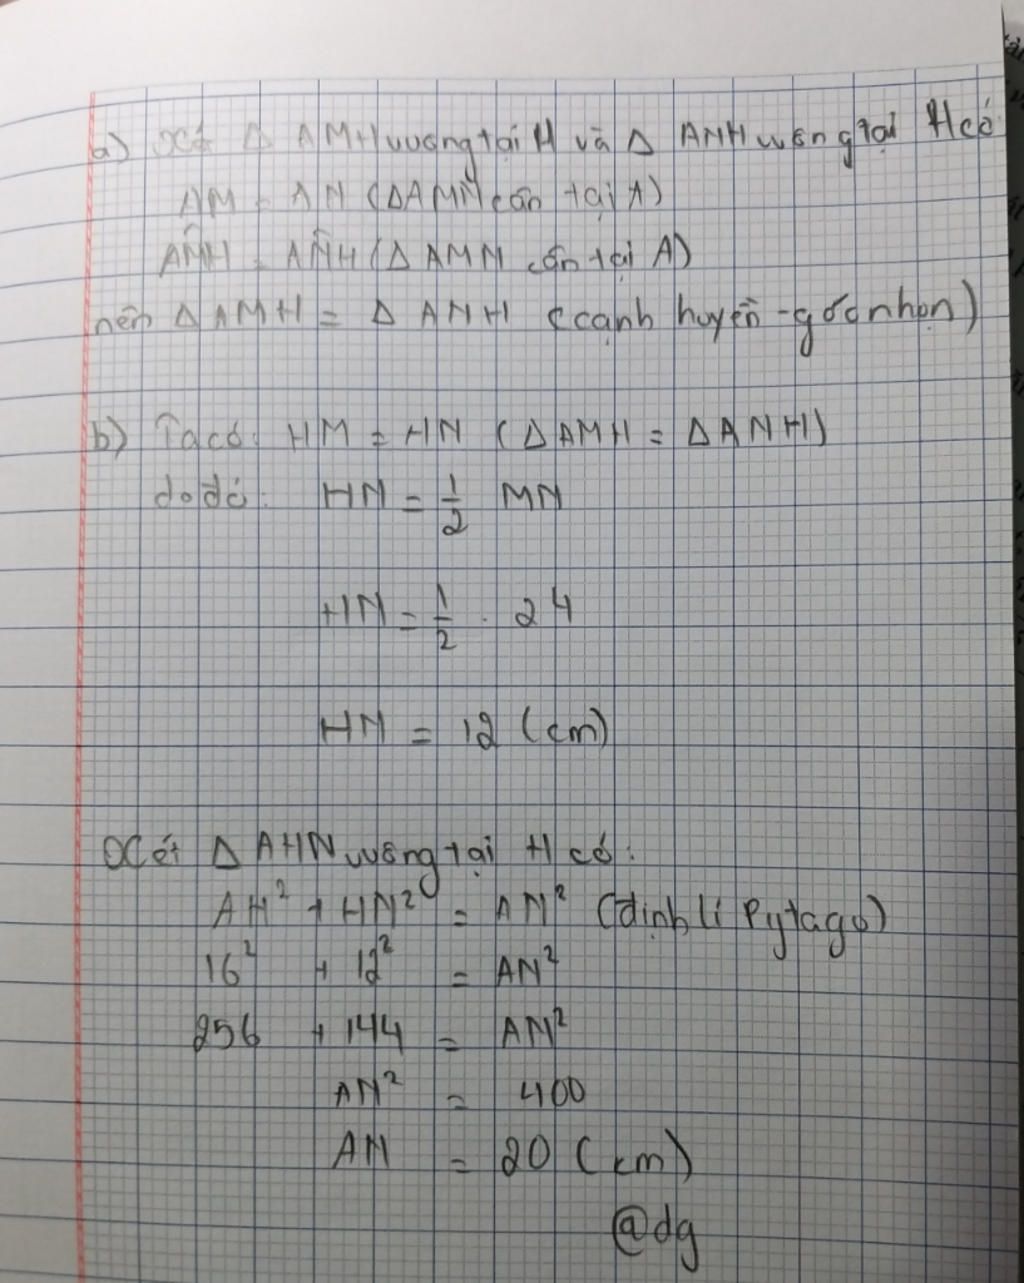 a) Xét Δ AMH vuông tại H và Δ ANH vuông tại H có
AM = AN (ΔAMN cân tại A)
AM̂H = AN̂H (Δ AMN cân tại A)
nên Δ AMH = Δ ANH (cạnh huyền - góc nhọn)
b) Ta có: HM = HN (Δ AMH = Δ ANH)
do đó: HN = 1/2 MN
HN = 1/2 . 24
HN = 12 (cm)
Xét Δ AHN vuông tại H có:
AH² + HN² = AN² (định lí Pytago)
16² + 12² = AN²
256 + 144 = AN²
AN² = 400
AN = 20 (cm)
@dg